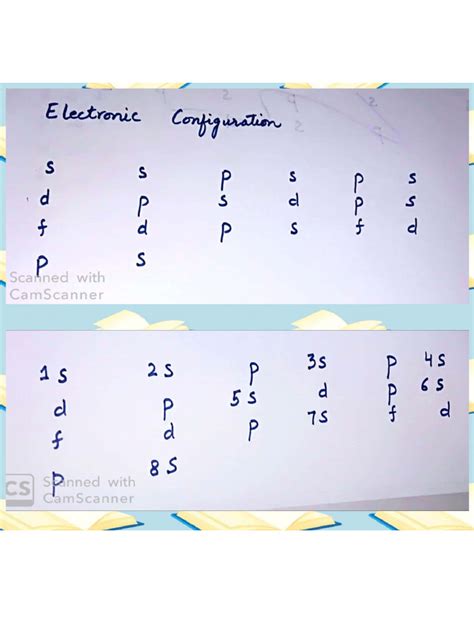 Electronic Configuration
s s p s p s
d p s d p s
f d p s f d
p s
Scanned with
CamScanner
1s 2s p 3s p 4s
d p 5s d p 6s
f d p 7s f d
p 8s
CS Scanned with
CamScanner